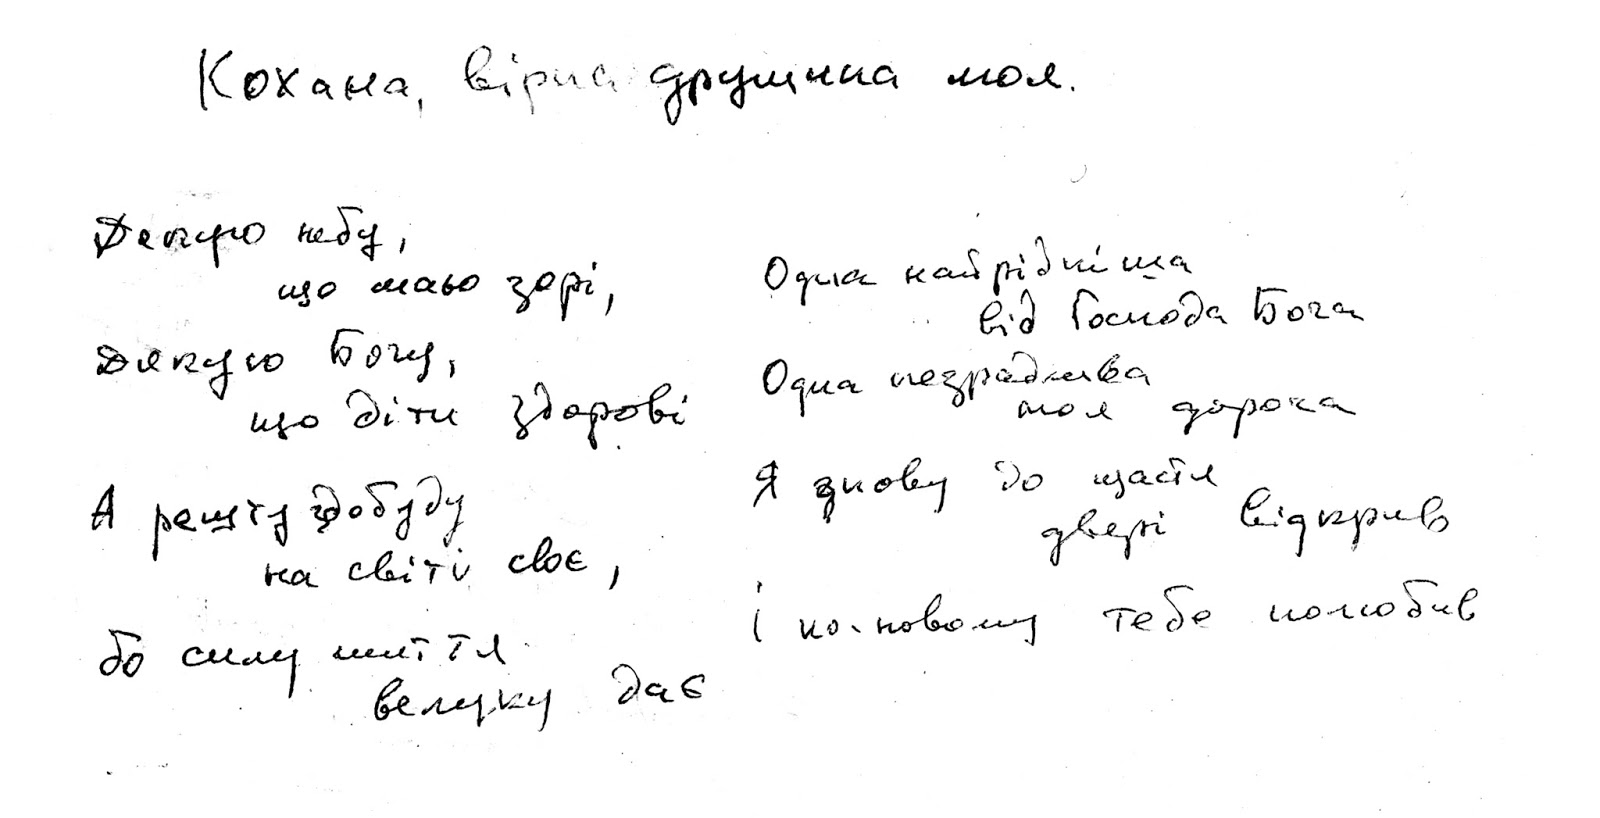 Кохана, вірна дружина моя.
Дякую небу,
що маю зорі,
Дякую Богу,
що діти здорові
А решту здобуду
на світі своє,
бо силу життя
велику дає
Одна найрідніша
від Господа Бога
Одна незрадлива
моя дорога
Я знову до щастя
двері відкрив
і по-новому тебе полюбив